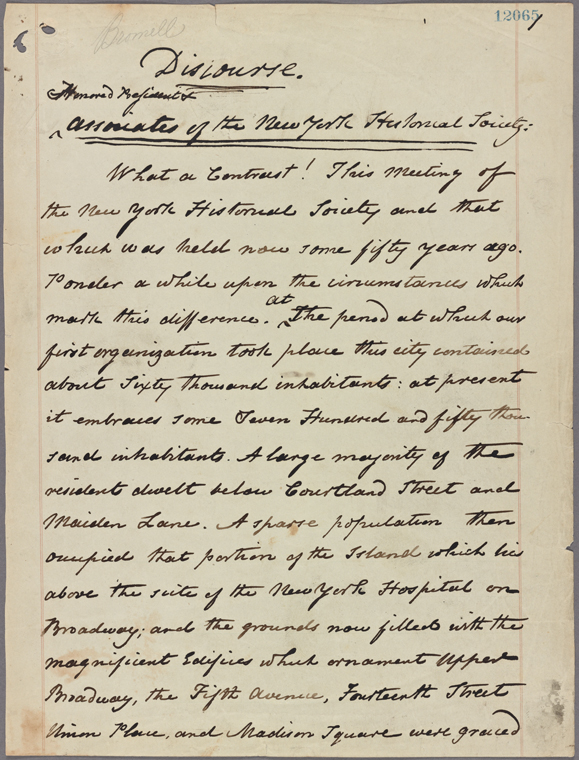 12065
Bromell
Discourse.
Honored President &
Associates of the New York Historical Society:
What a Contrast! This meeting of
the New York Historical Society and that
which was held now some fifty years ago.
Ponder a while upon the circumstances which
mark this difference. at The period at which our
first organization took place this city contained
about Sixty thousand inhabitants: at present
it embraces some Seven Hundred and fifty thou
sand inhabitants. A large majority of the
residents dwelt below Courtland Street and
Maiden Lane. A sparse population then
occupied that portion of the Island which lies
above the suite of the New York Hospital on
Broadway; and the grounds now filled with the
magnificent Edifices which ornament Upper
Broadway, the Fifth Avenue, Fourteenth Street
Union Place, and Madison Square were graced